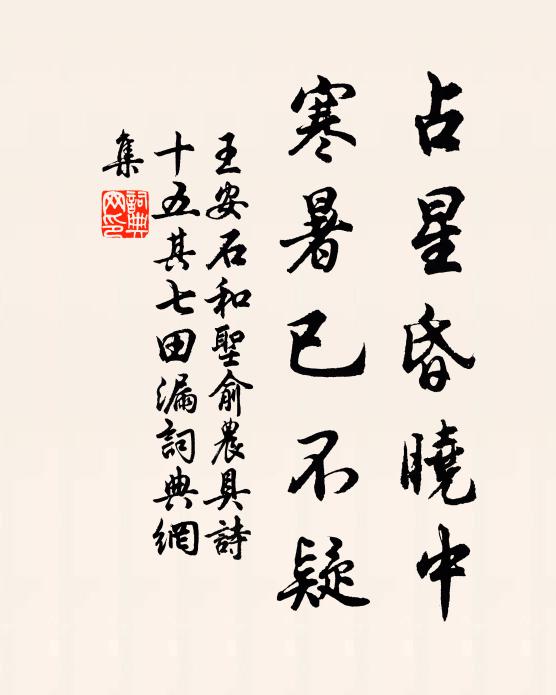 占星昏曉中
寒暑已不疑
王安石和聖俞農具詩
十五其七田漏詞典網
集
詞典網印